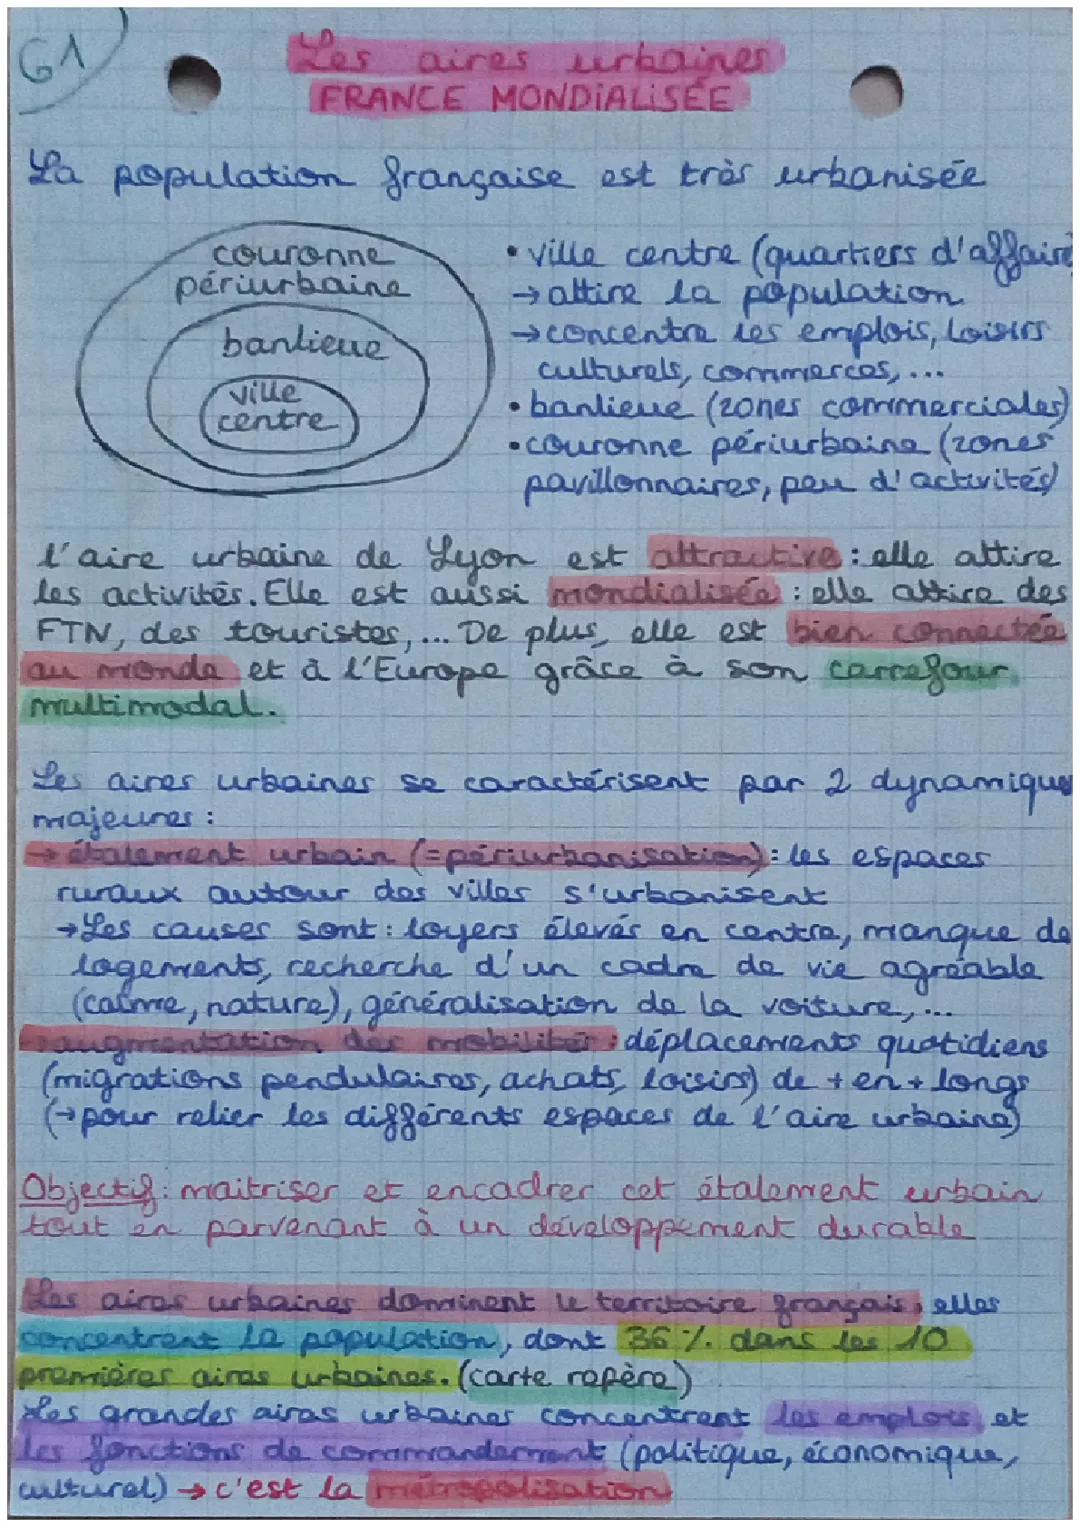 G1
Les aires urbaines
FRANCE MONDIALISÉE
La population française est très urbanisée
couronne
périurbaine
banlieue
ville
centre
• ville centre (quartiers d'affaire
→ attire la population
→ concentre les emplois, loisirs
culturels, commerces, ...
• banlieue (zones commerciales)
• couronne périurbaine (zones
pavillonnaires, peu d'activités)
l'aire urbaine de Lyon est attractive : elle attire
les activités. Elle est aussi mondialisée : elle attire des
FTN, des touristes, ... De plus, elle est bien connectée
au monde et à l'Europe grâce à son carrefour
multimodal.
Les aires urbaines se caractérisent par 2 dynamiques
majeures :
→ étalement urbain (=périurbanisation) : les espaces
ruraux autour des villes s'urbanisent
→ Les causes sont : loyers élevés en centre, manque de
logements, recherche d'un cadre de vie agréable
(calme, nature), généralisation de la voiture, ...
→ augmentation des mobilités : déplacements quotidiens
(migrations pendulaires, achats, loisirs) de + en + longs
(→ pour relier les différents espaces de l'aire urbaine)
Objectif : maitriser et encadrer cet étalement urbain
tout en parvenant à un développement durable
Les aires urbaines dominent le territoire français, elles
concentrent la population, dont 36 % dans les 10
premières aires urbaines. (carte repère)
Les grandes aires urbaines concentrent les emplois et
les fonctions de commandement (politique, économique,
culturel) → c'est la métropolisation